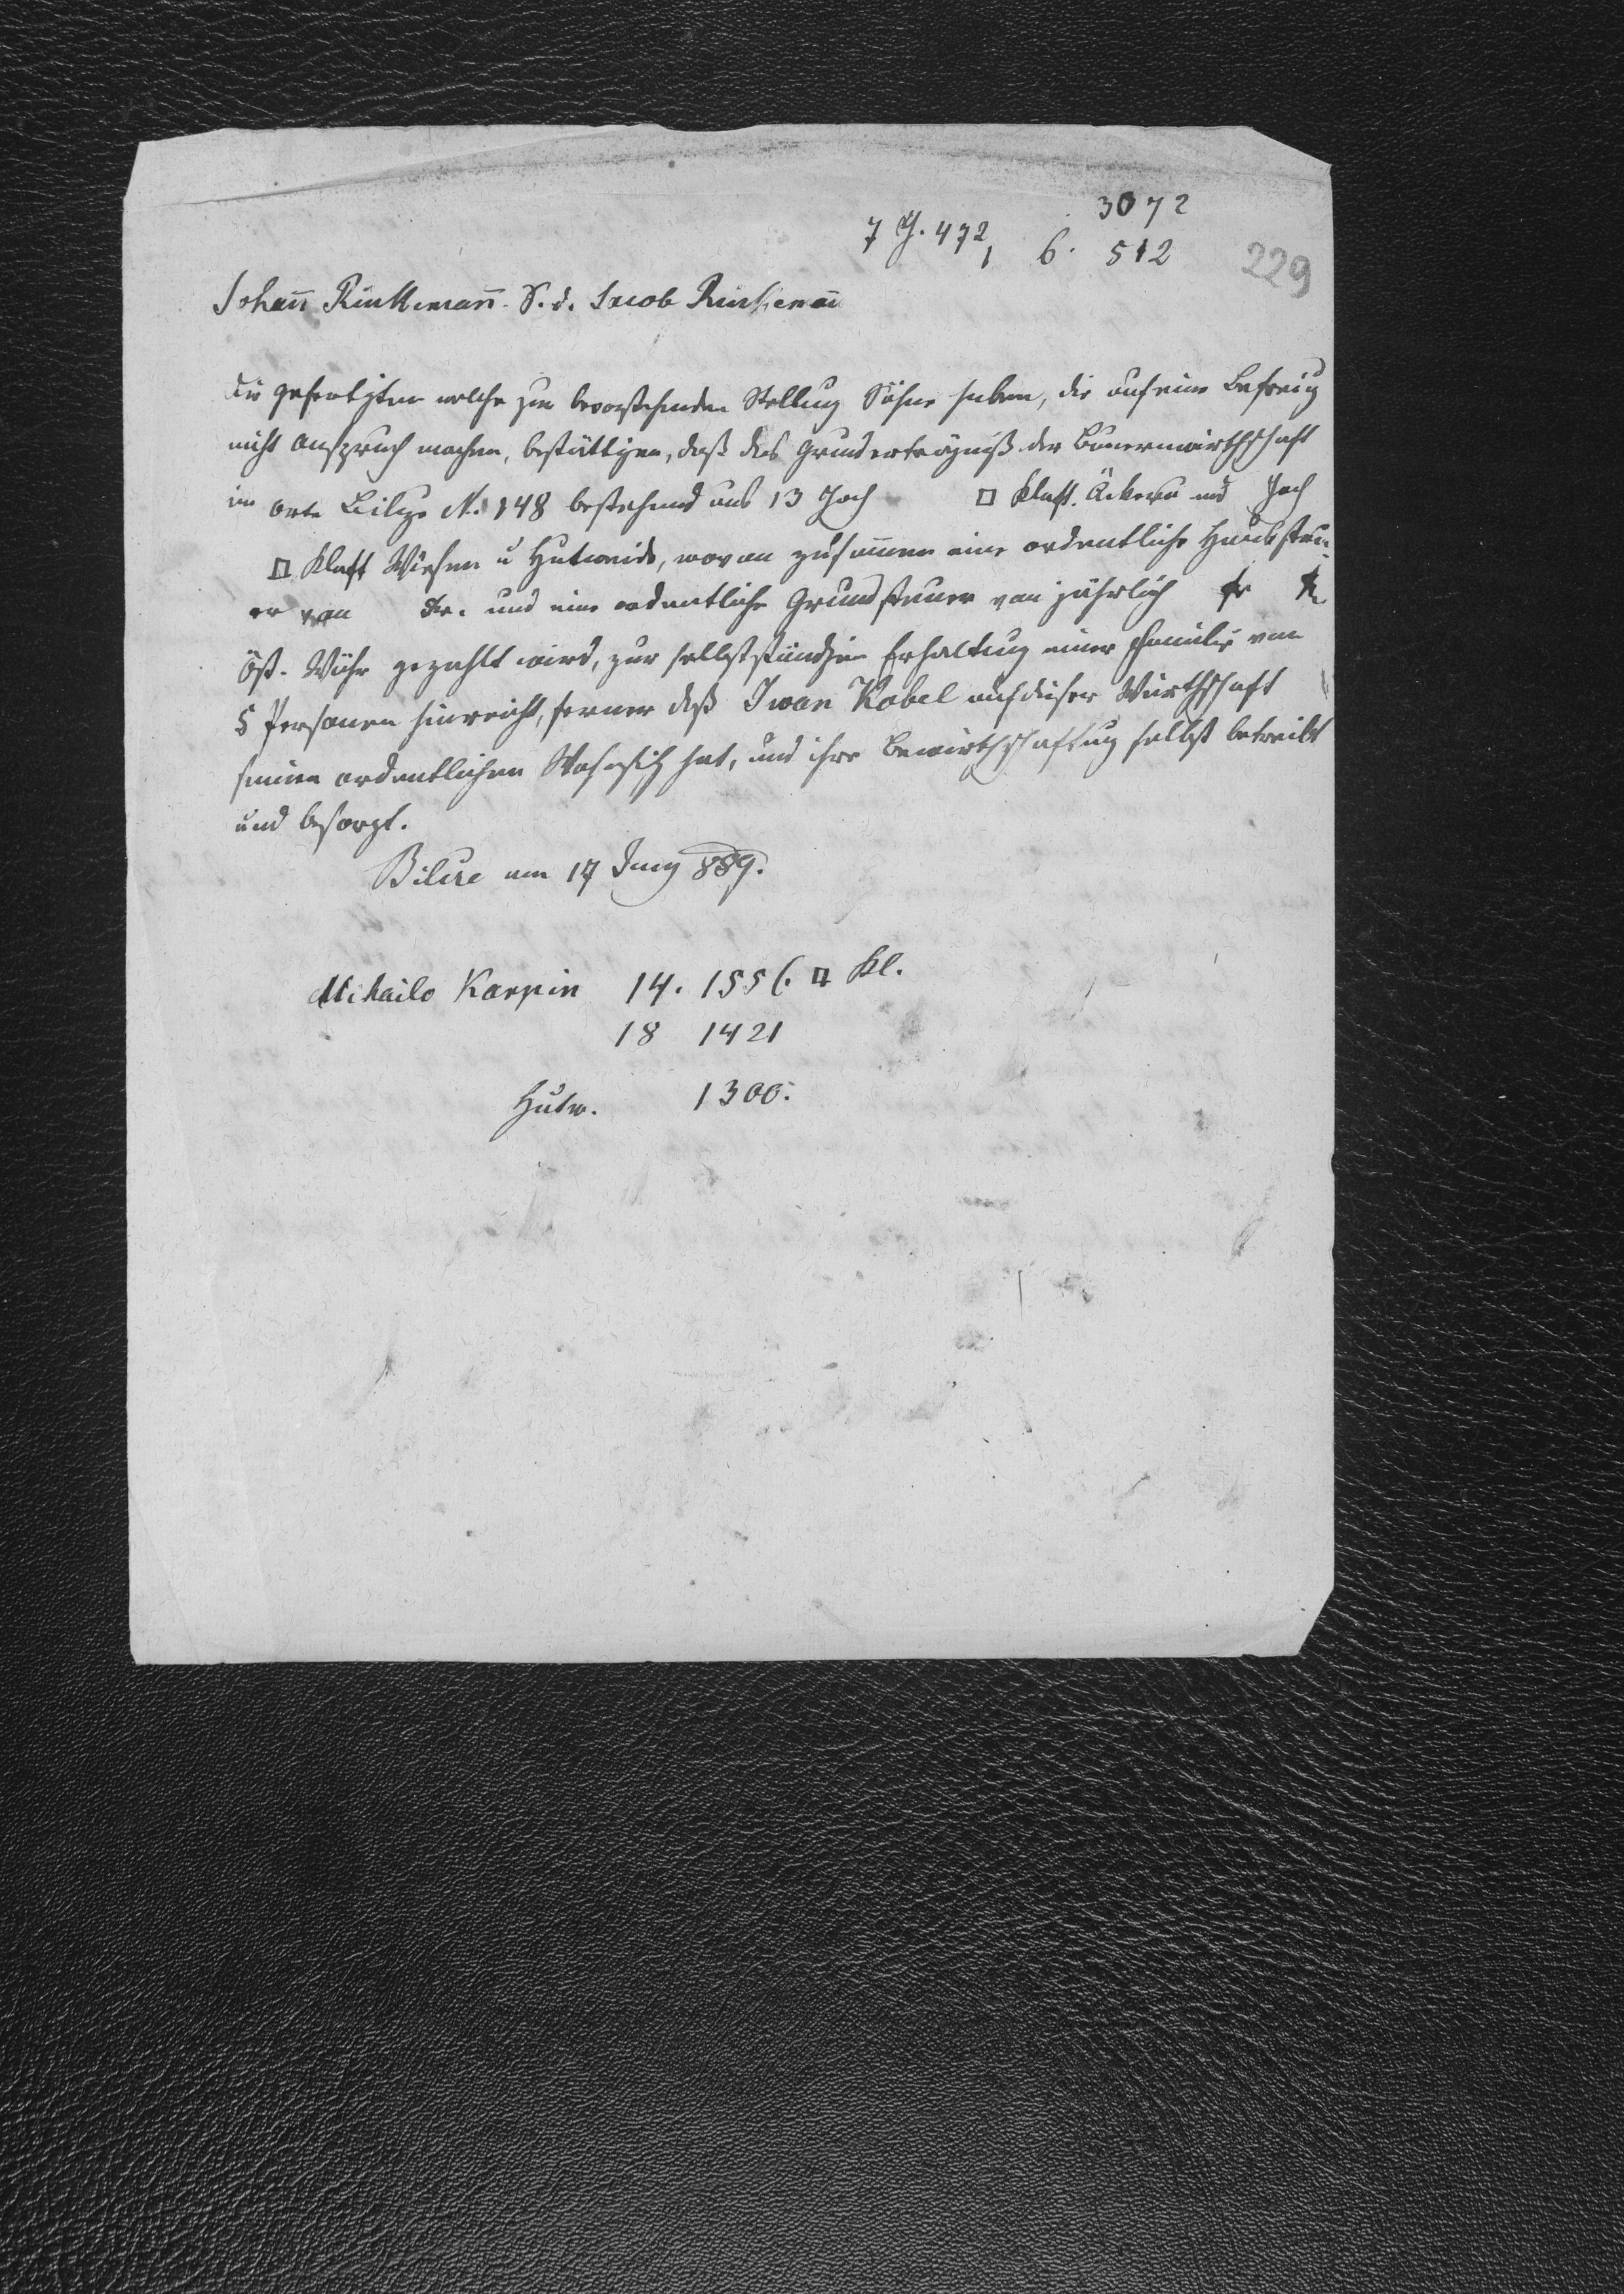 3072
7 J. 472, 6. 512
229
Johann̄ Rinkeman̄. S. d. Jacob
Die gefertigten welche zur bevorstehenden Stellung Söhne haben, die auf eine Befreiung
nicht Anspruch machen, bestättigen, daß das Grunderträgniß der Bauernwirthschaft
im Orte Bilcze N. 148 bestehend aus 13 Joch □ Klaft. Äckern und Joch
□ Klaft Wiesen u Hutweide, wovon zusammen eine ordentliche Haussteu-
er von Kr. und eine ordentliche Grundsteuer von jährlich fr Kr
öst. Währ gezahlt wird, zur selbstständigen Erhaltung einer Familie von
5 Personen hinreicht, ferner daß Iwan Kobel auf dieser Wirthschaft
seinen ordentlichen Wohnsitz hat, und ihre Bewirthschaftung selbst betreibt
und besorgt.
Bilcze am 17 Juny 889.
Mihailo Karpin 14. 1556. □ Kl.
18 1421
Hutw. 1300.